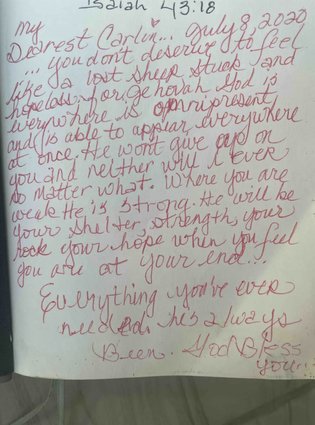 Isaiah 43:18
My
Dearest Carlin... July 8, 2020
... you don't deserve to feel
like a lost sheep stuck and
hopeless. for Jehovah God is
everywhere is omnipresent
and is able to appear everywhere
at once. He won't give up on
you and neither will I EVER
no matter what. Where you are
weak He is strong. He will be
your shelter, strength, your
rock your hope when you feel
you are at your end...
Everything you've ever
needed his always
Been. God Bless
you...